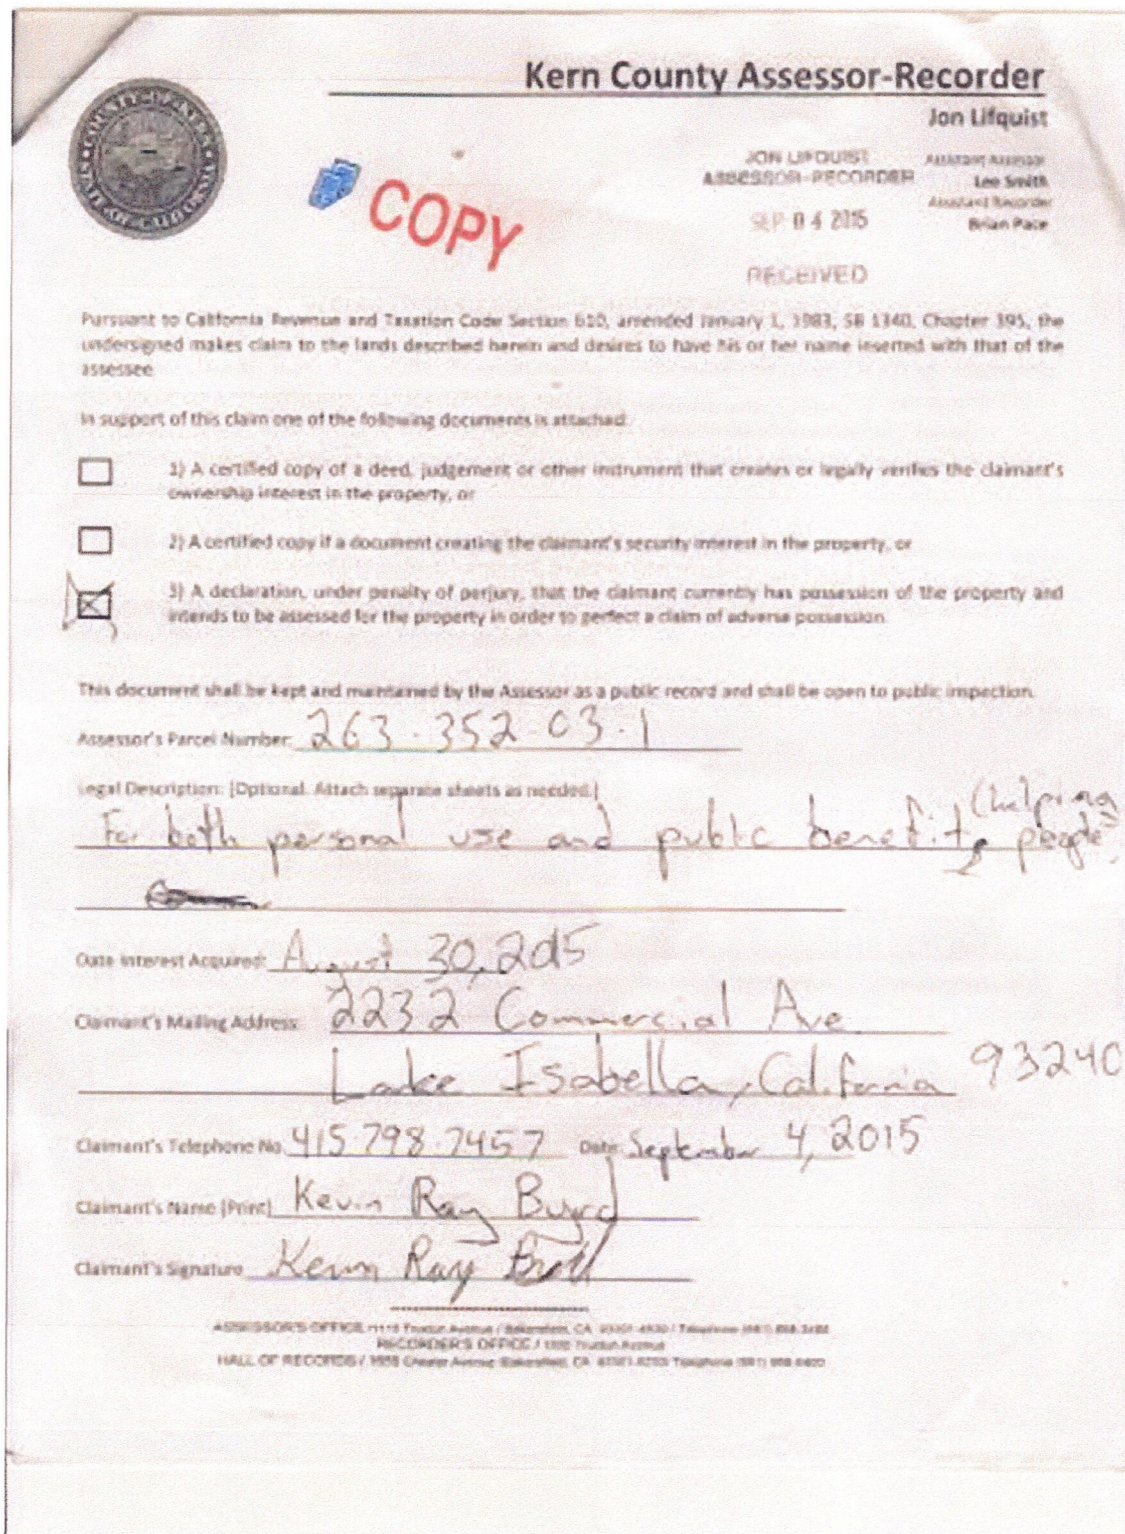 Kern County Assessor-Recorder
Jon Lifquist
JON LIFQUIST
ASSESSOR-RECORDER
SEP 04 2015
RECEIVED
Assistant Assessor
Lee Smith
Assistant Recorder
Brian Pace
COPY
Pursuant to California Revenue and Taxation Code Section 610, amended January 1, 1983, SB 1340, Chapter 395, the
undersigned makes claim to the lands described herein and desires to have his or her name inserted with that of the
assessee
In support of this claim one of the following documents is attached:
1) A certified copy of a deed, judgement or other instrument that creates or legally verifies the claimant's
ownership interest in the property, or
2) A certified copy if a document creating the claimant's security interest in the property, or
3) A declaration, under penalty of perjury, that the claimant currently has possession of the property and
intends to be assessed for the property in order to perfect a claim of adverse possession.
This document shall be kept and maintained by the Assessor as a public record and shall be open to public inspection.
Assessor's Parcel Number: 263-352-03-1
Legal Description: [Optional. Attach separate sheets as needed.]
For both personal use and public benefit, (helping
people
Date Interest Acquired: August 30, 2015
Claimant's Mailing Address: 2232 Commercial Ave
Lake Isabella, California 93240
Claimant's Telephone No. 415-798-7457 Date: September 4, 2015
Claimant's Name [Print] Kevin Ray Byrd
Claimant's Signature Kevin Ray
ASSESSOR'S OFFICE / 1115 Truxtun Avenue / Bakersfield, CA Telephone
RECORDER'S OFFICE / Truxtun Avenue
HALL OF RECORDS / Chester Avenue Bakersfield, CA Telephone